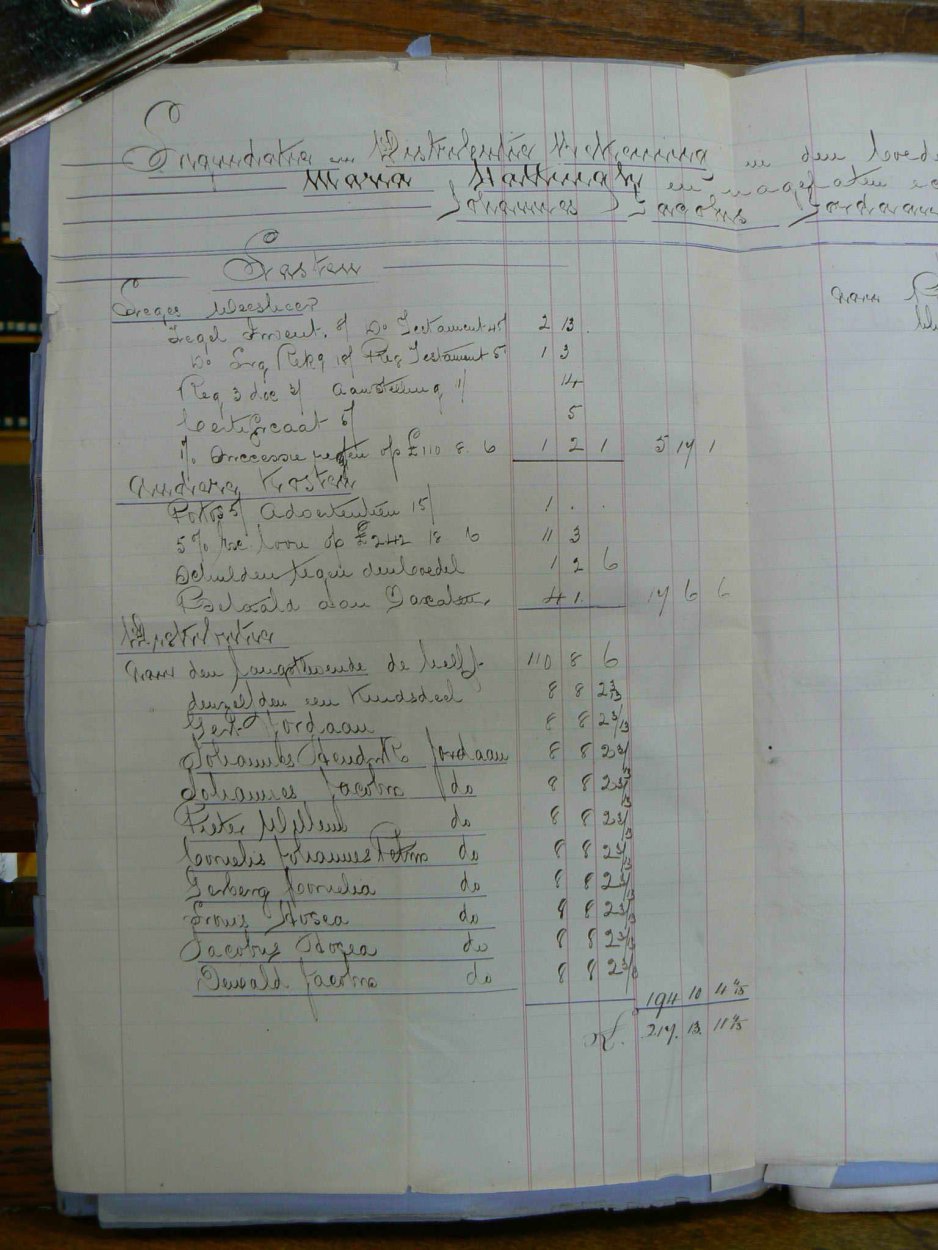 Liquidatie en Distributie Rekening in den boed
Maria Hattingh en nagelaten
Johannes Jacobus Jordaan
Lasten
Leges Weesheer
Zegel Invent. 5/ Do Testament 45/ 2 13 .
Do Liq Rekg 18/ Reg Testament 5/ 1 3
Reg 3 doc 3/ Aanstelling 1/ 4
Certificaat 5/ 5
1% Successie rechten op £110 8. 6 1 2 1 5 17 1
Andere Kosten
Porto 5/ Advertentien 15/ 1 . .
5% loon op £242 18 6 11 3
Schulden tegen den boedel 1 2 6
Betaald aan Taxateur 4 1. 17 6 6
Distributie
Aan den langstlevende de helft 110 8 6
denzelfden een Kindsdeel 8 8 2 3/13
Gert Jordaan 8 8 2 3/13
Johannes Hendrik Jordaan 8 8 2 3/13
Johannes Jacobus do 8 8 2 3/13
Pieter Willem do 8 8 2 3/13
Cornelis Johannes do 8 8 2 3/13
Cornelia do 8 8 2 3/13
Louis Hosea do 8 8 2 3/13
Jacobus Hosea do 8 8 2 3/13
Dewald Jacobus do 8 8 2 3/13
194 10 4
217. 13. 11
aan